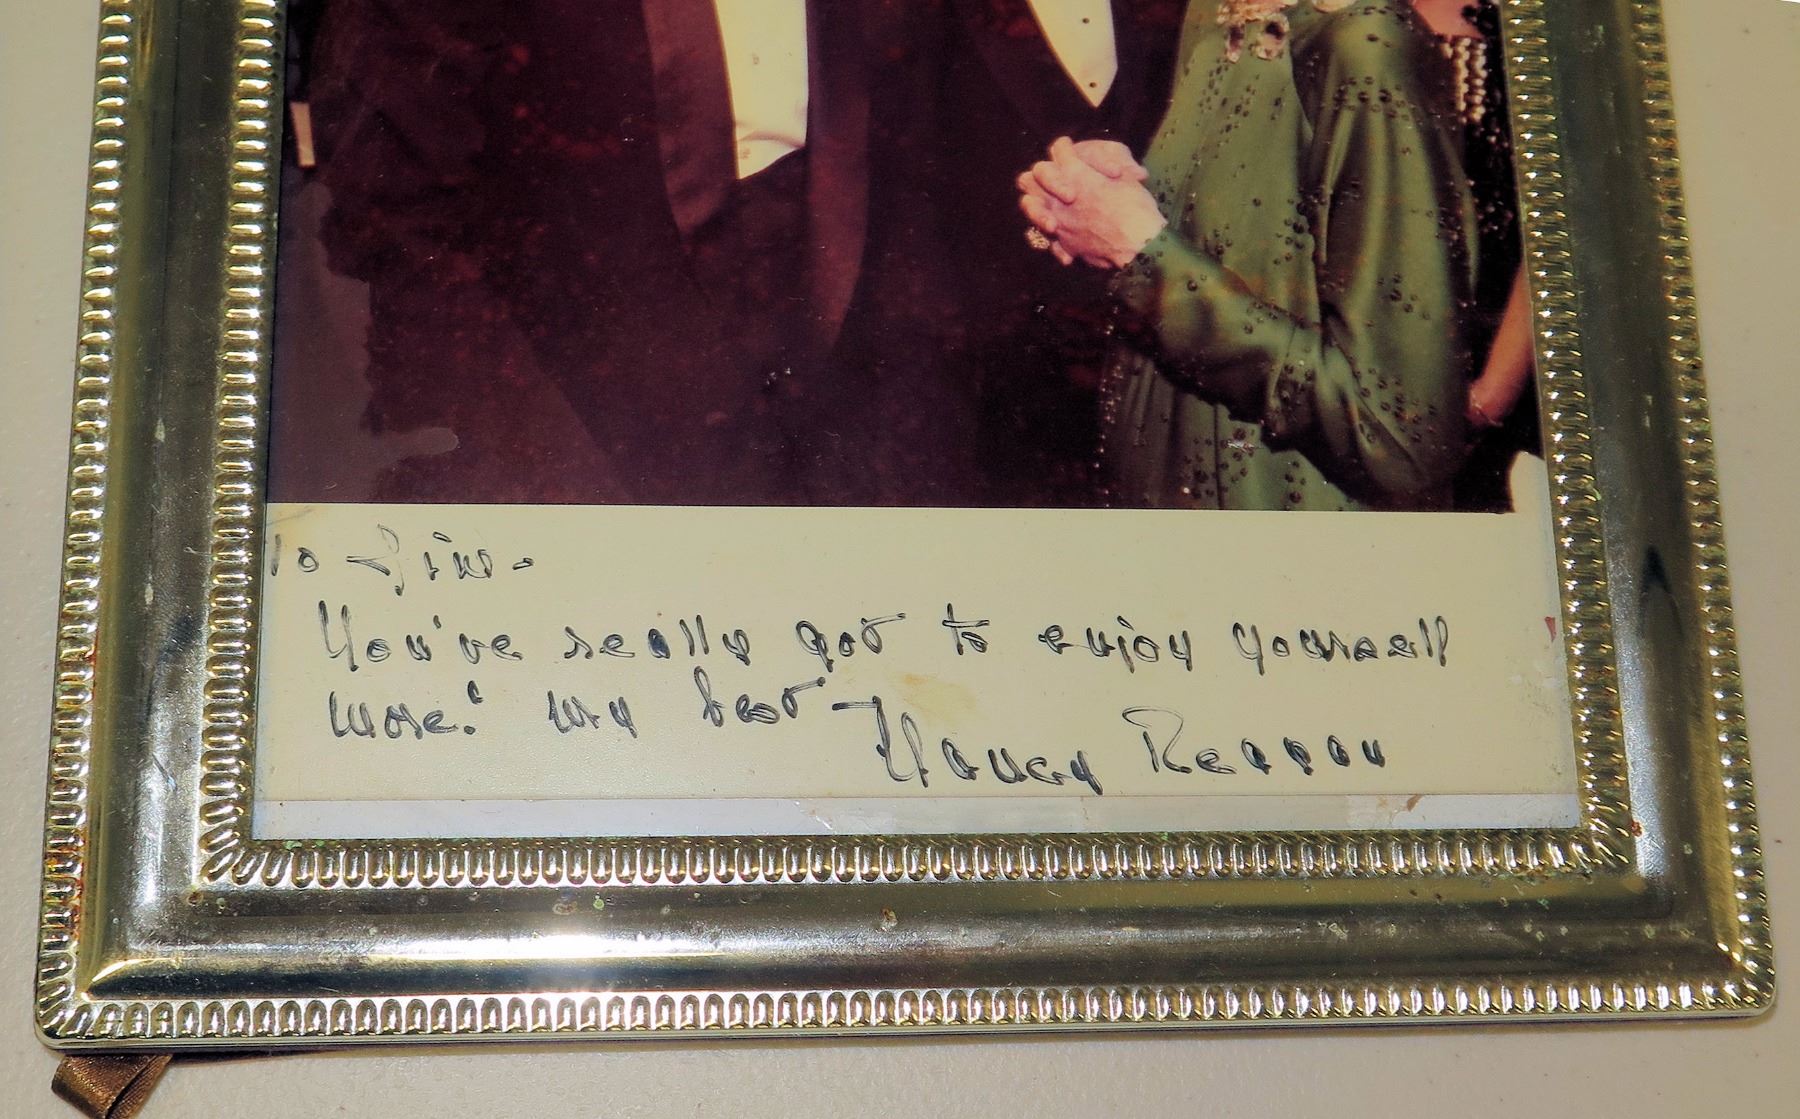 To Jim -
You've really got to enjoy yourself
more! My best -
Nancy Reagan